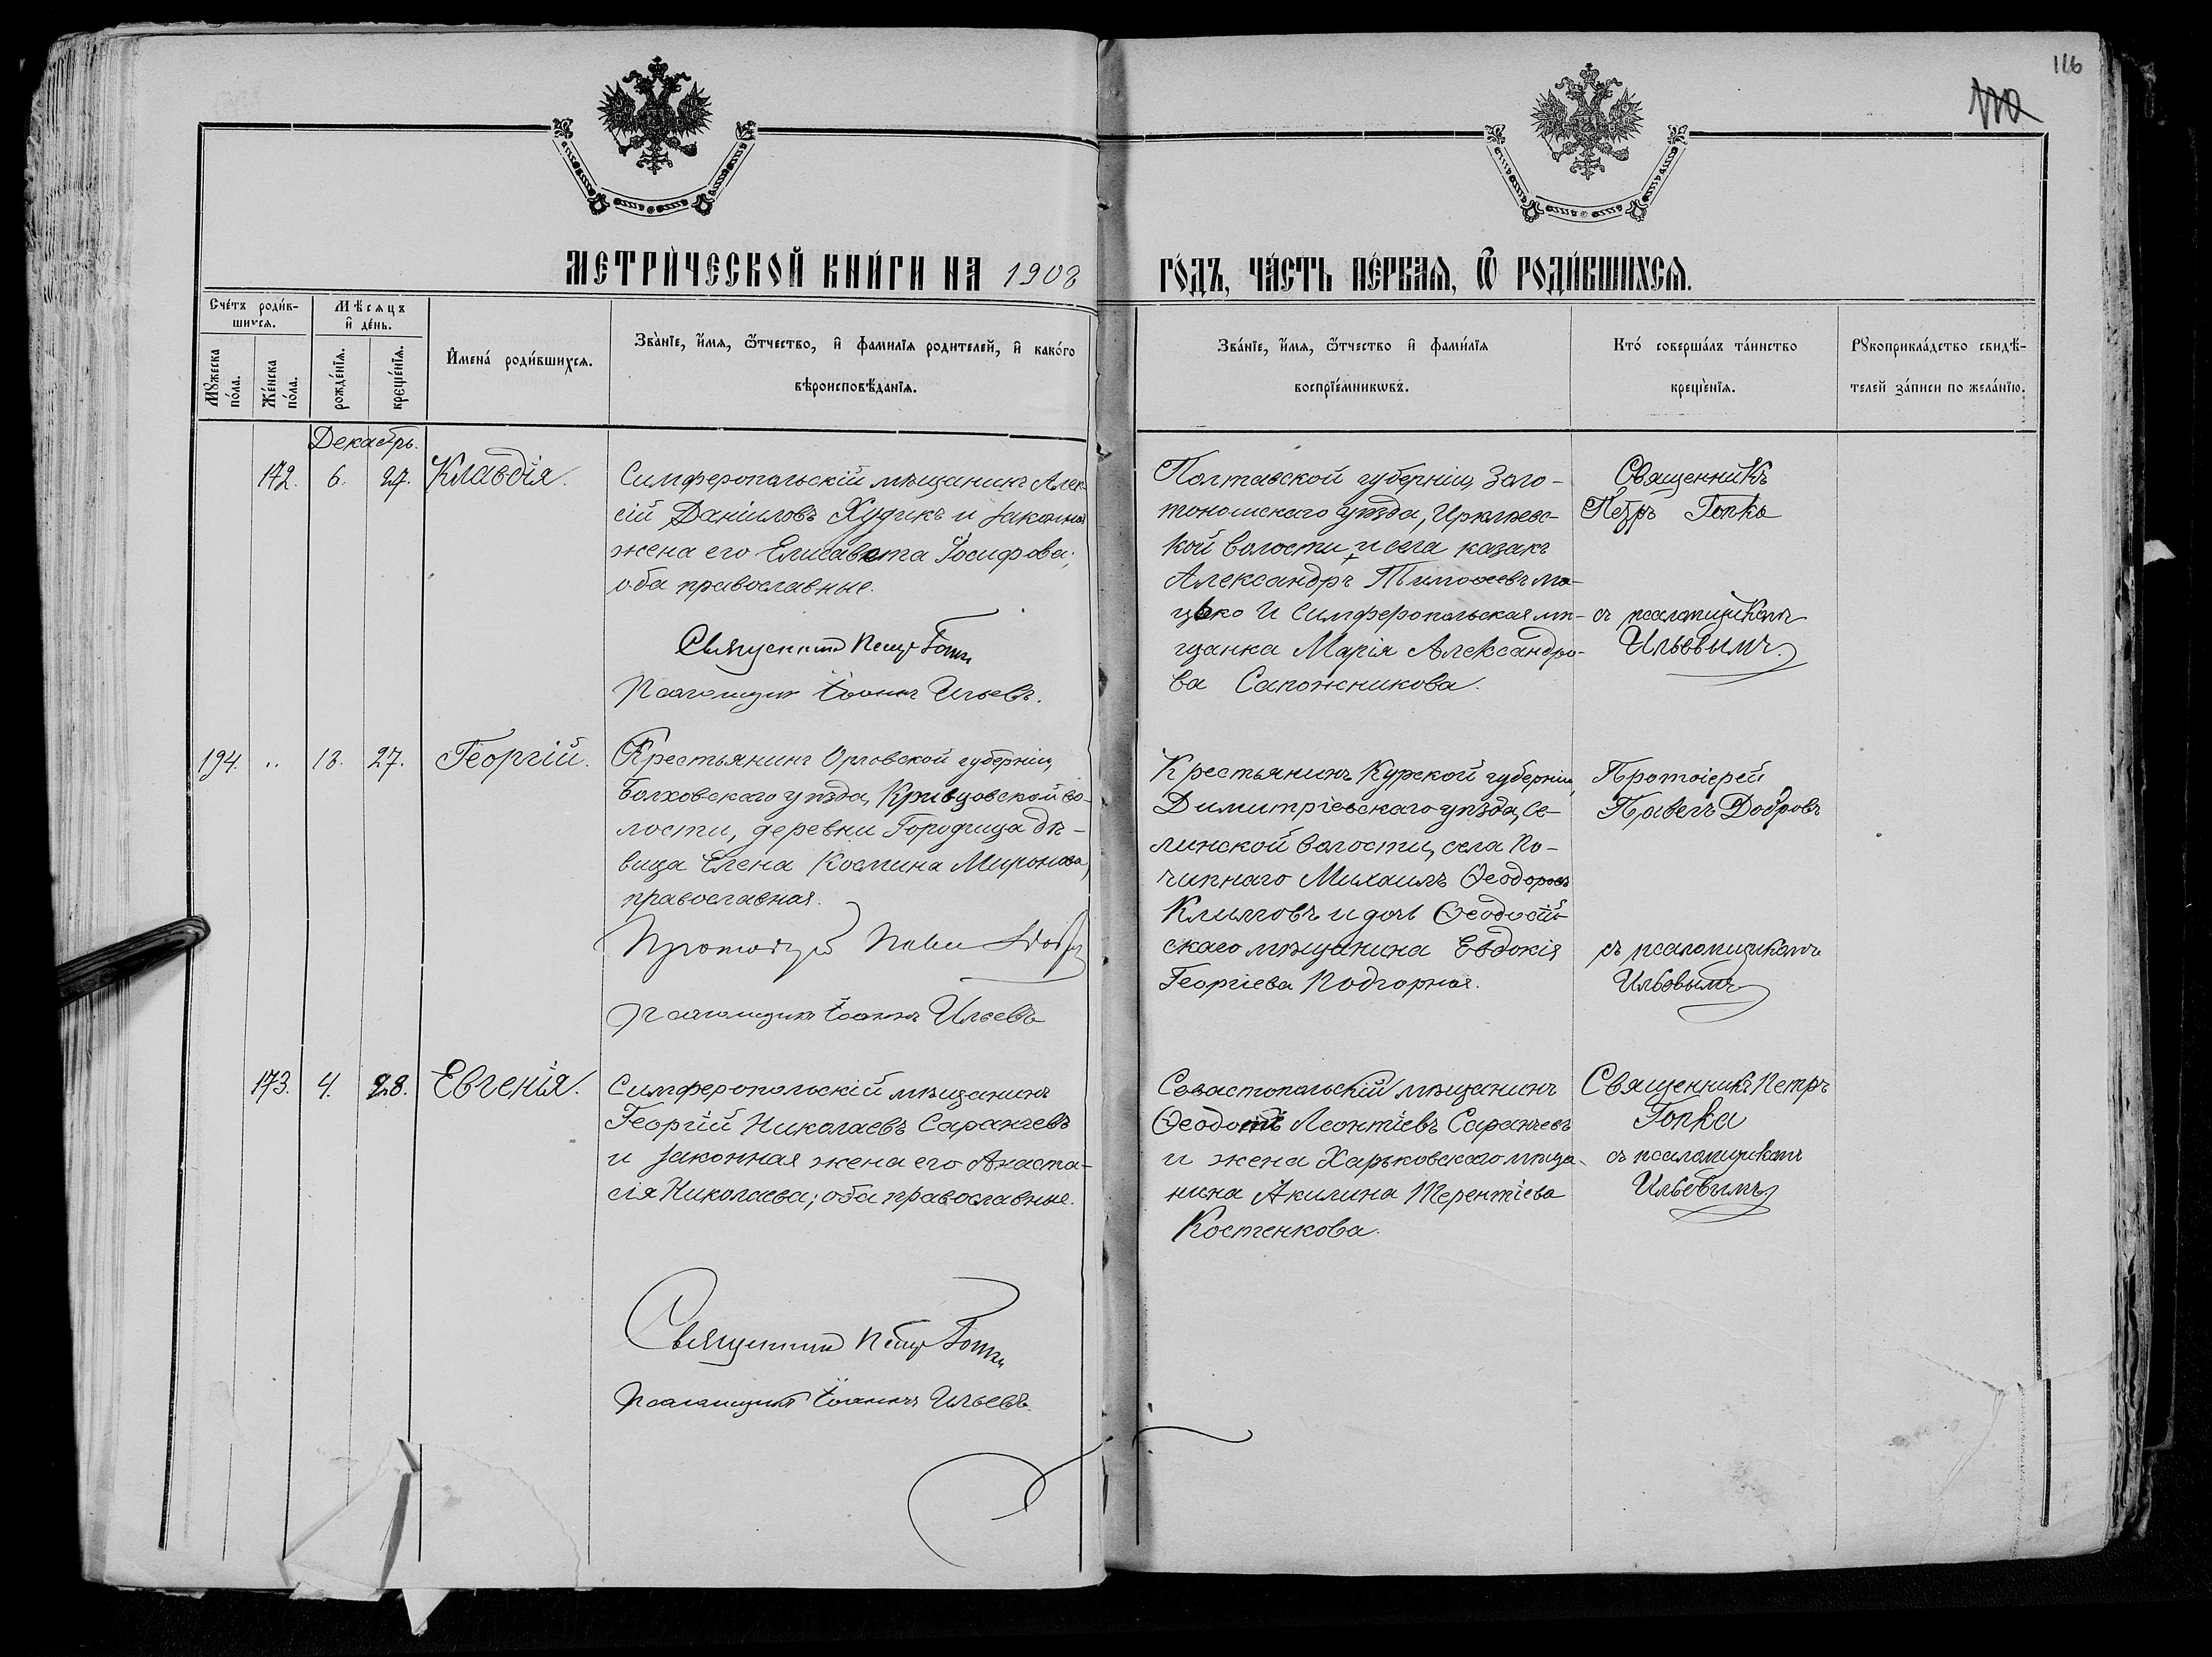 116
110
МЕТРИ́ЧЕСКОЙ КНИ́ГИ НА 1908
ГО́ДЪ, ЧА́СТЬ ПЕ́РВАЯ, Ѿ РОДИ́ВШИХСЯ.
Сче́тъ роди́в-
шихся.
Мѣсяцъ
и҆ де́нь.
Мꙋжеска по́ла.
Же́нска по́ла.
рожде́нїя.
креще́нїя.
И҆мена́ роди́вшихся.
Зва́нїе, и҆́мя, ѻ҆́тчество, и҆ фамилїя родителей, и҆ како́го
вѣроисповѣ́данїя.
Зва́нїе, и҆́мя, ѻ҆́тчество и҆ фами́лїя
воспрїе́мникѡвъ.
Кто́ соверша́лъ та́инство
креще́нїя.
Рꙋкоприкла́дство свидѣ́-
телей за́писи по жела́нїю.
Декабрь.
172. 6. 27. Клавдія.
Симферопольскій мѣщанинъ Алек-
сій Даніиловъ Худикъ и законная
жена его Елисавета Іосифова;
оба православные.
Священникъ Петръ Гопка
Псаломщикъ Іоаннъ Ильевъ.
Полтавской губерніи, Золо-
тоношскаго уѣзда, Ирклѣевс-
кой волости и села казакъ
Александръ Тимоѳеевъ Ма-
цько и Симферопольская мѣ-
щанка Марія Александро-
ва Сапожникова.
Священникъ
Петръ Гопка
съ псаломщикомъ
Ильевымъ
194. " 13. 27. Георгій.
Крестьянинъ Орловской губерніи,
Болховскаго уѣзда, Кривцовской во-
лости, деревни Городища дѣ-
вица Елена Космина Миронова,
православная.
Протоіерей Павелъ Добровъ
Псаломщикъ Іоаннъ Ильевъ
Крестьянинъ Курской губерніи,
Димитріевскаго уѣзда, Се-
линской волости, села По-
чипнаго Михаилъ Ѳеодоровъ
Климовъ и дочь Ѳеодосій-
скаго мѣщанина Евдокія
Георгіева Подгорная.
Протоіерей
Павелъ Добровъ
съ псаломщикомъ
Ильевымъ
173. 4. 28. Евгенія.
Симферопольскій мѣщанинъ
Георгій Николаевъ Саранчевъ
и законная жена его Анаста-
сія Николаева; оба православные.
Священникъ Петръ Гопка
Псаломщикъ Іоаннъ Ильевъ.
Севастопольскій мѣщанинъ
Ѳеодотъ Леонтіевъ Саранчевъ
и жена Харьковскаго мѣща-
нина Акилина Терентіева
Костенкова.
Священникъ Петръ
Гопка
съ псаломщикомъ
Ильевымъ